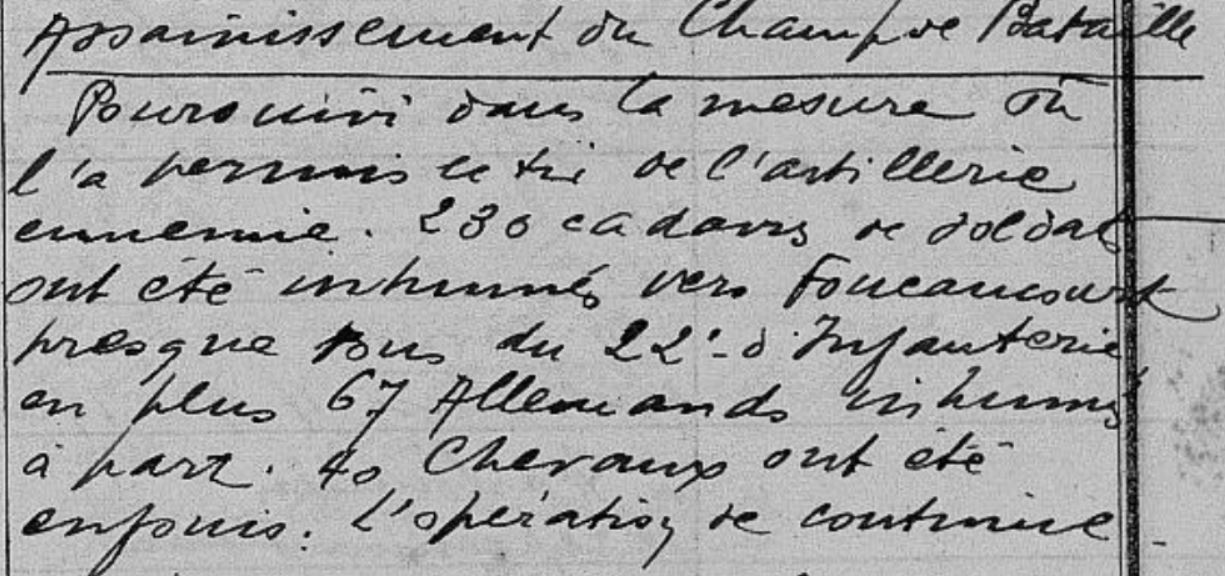 Assainissement du Champ de Bataille
Poursuivi dans la mesure où
l'a permis le tir de l'artillerie
ennemie. 230 cadavres de soldats
ont été inhumés vers Foucaucourt
presque tous du 22e d'Infanterie
en plus 67 Allemands inhumés
à part. 40 Chevaux ont été
enfouis. L'opération se continue